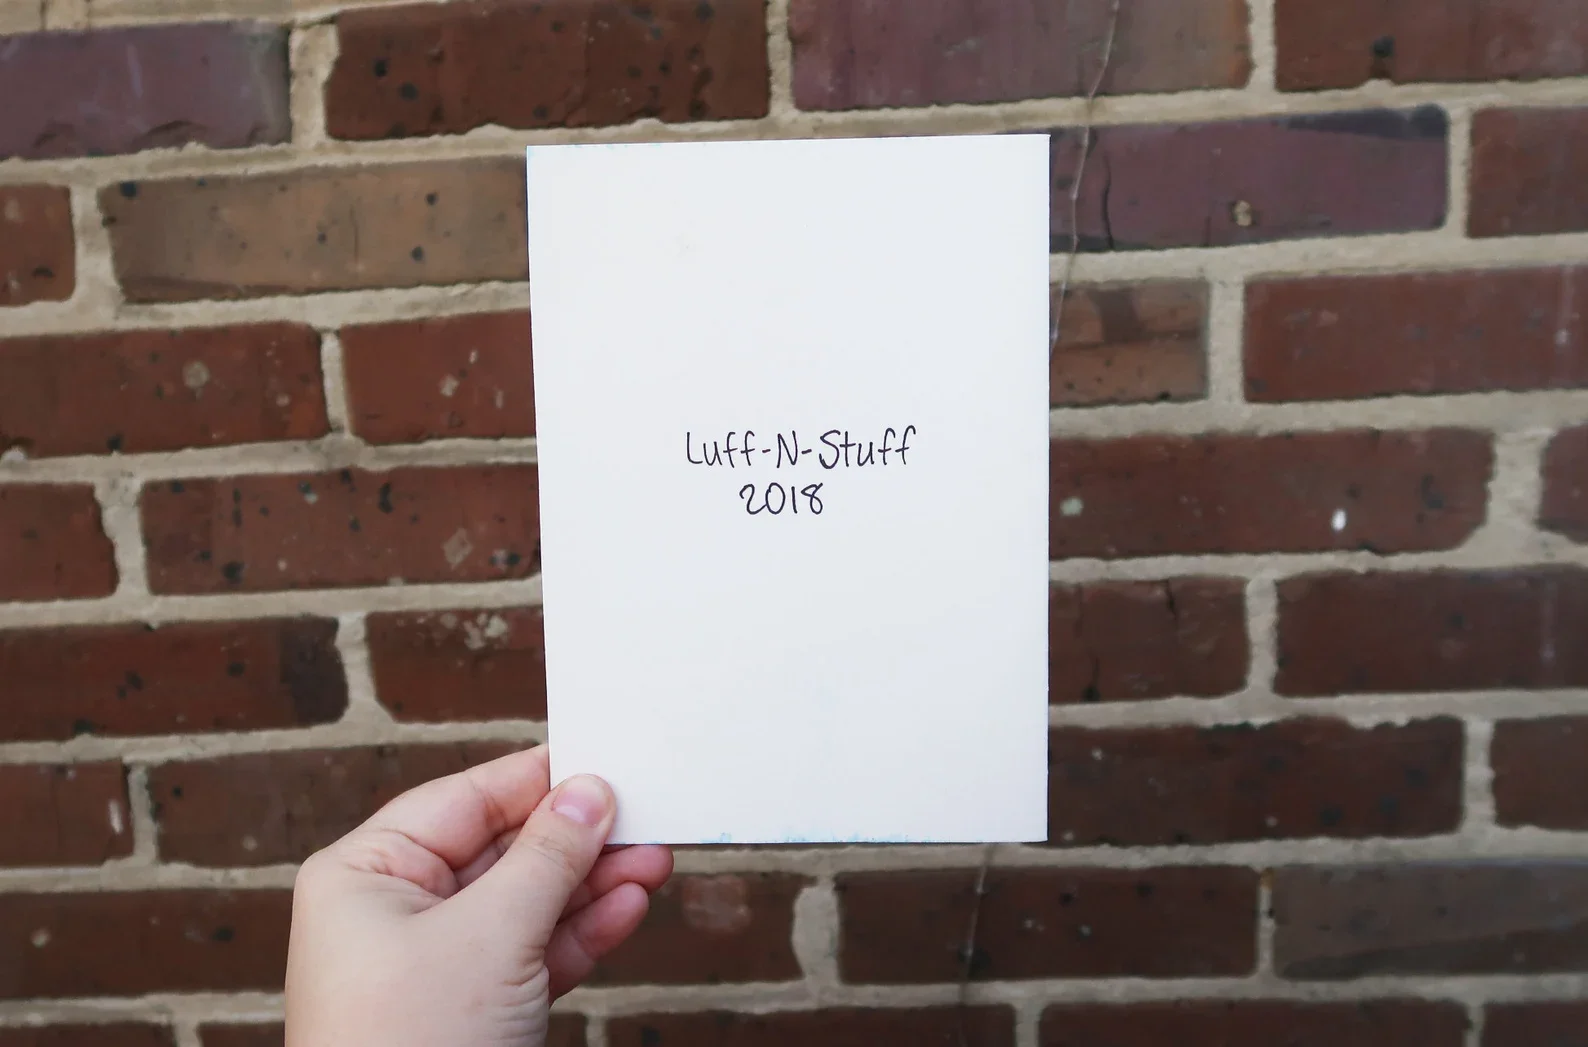 Luff-N-Stuff
2018